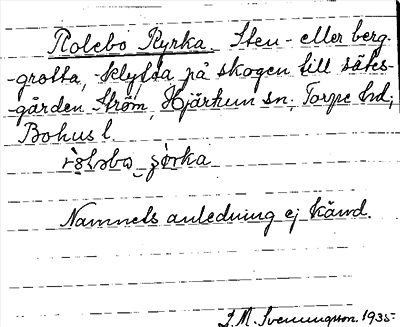 Rolebo Kyrka. Sten- eller berg-
-grotta, -klyfta på skogen till sätes-
-gården Ström, Hjärtum sn; Torpe hd;
Bohus l.
Namnets anledning ej känd.
J. M. Svenungsson. 1935-